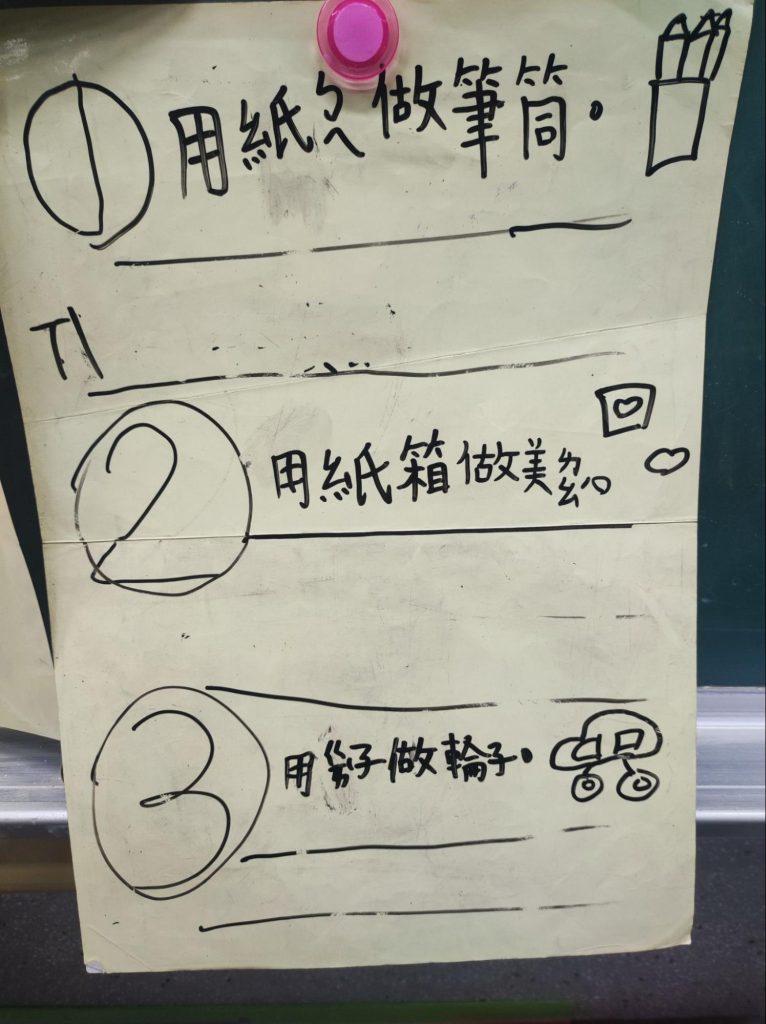 1 用紙ㄅㄟ做筆筒。
2 用紙箱做美ㄌㄠˊ。
3 用ㄍㄞˋ子做輪子。